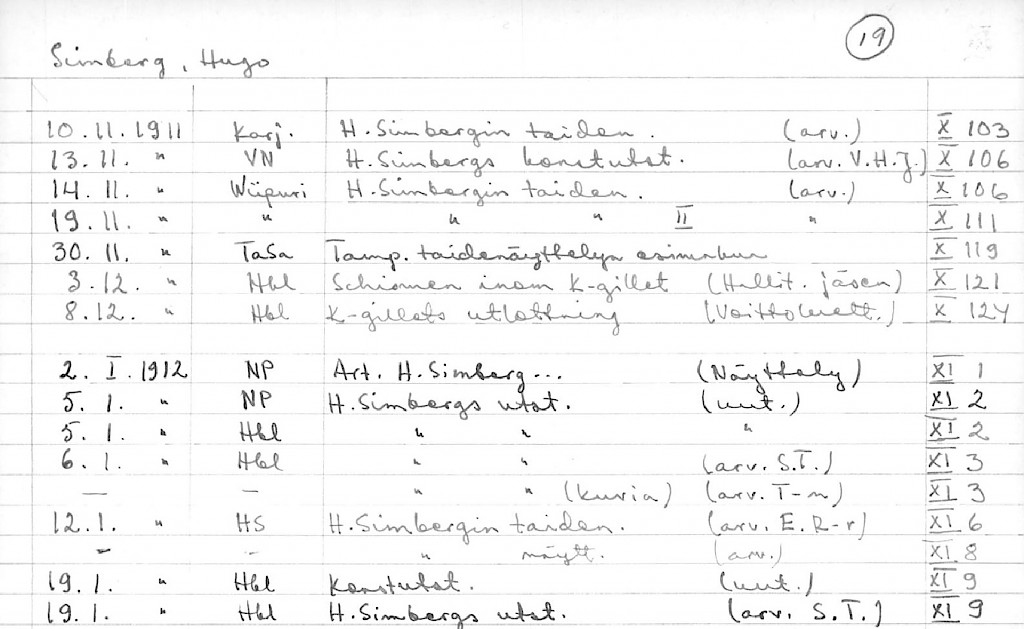 19
Simberg, Hugo
10. 11. 1911 Karj. H. Simbergin taiden. (arv.) X 103
13. 11. " VN H. Simbergs konstutst. (arv. V.H.J.) X 106
14. 11. " Wiipuri H. Simbergin taiden. (arv.) X 106
19. 11. " " " " II " X 111
30. 11. " TaSa Tamp. taidenäyttelyn X 119
3. 12. " Hbl inom K-gillet (Hallit. jäsen) X 121
8. 12. " Hbl K-gillets utlottning X 124
2. I. 1912 NP Art. H. Simberg... (Näyttely) XI 1
5. 1. " NP H. Simbergs utst. (uut.) XI 2
5. 1. " Hbl " " " XI 2
6. 1. " Hbl " " (arv. S.T.) XI 3
— — " " (kuvia) (arv. T-n) XI 3
12. 1. " HS H. Simbergin taiden. (arv. E. R-r) XI 6
– – " näytt. (arv.) XI 8
19. 1. " Hbl Konstutst. (uut.) XI 9
19. 1. " Hbl H. Simbergs utst. (arv. S.T.) XI 9